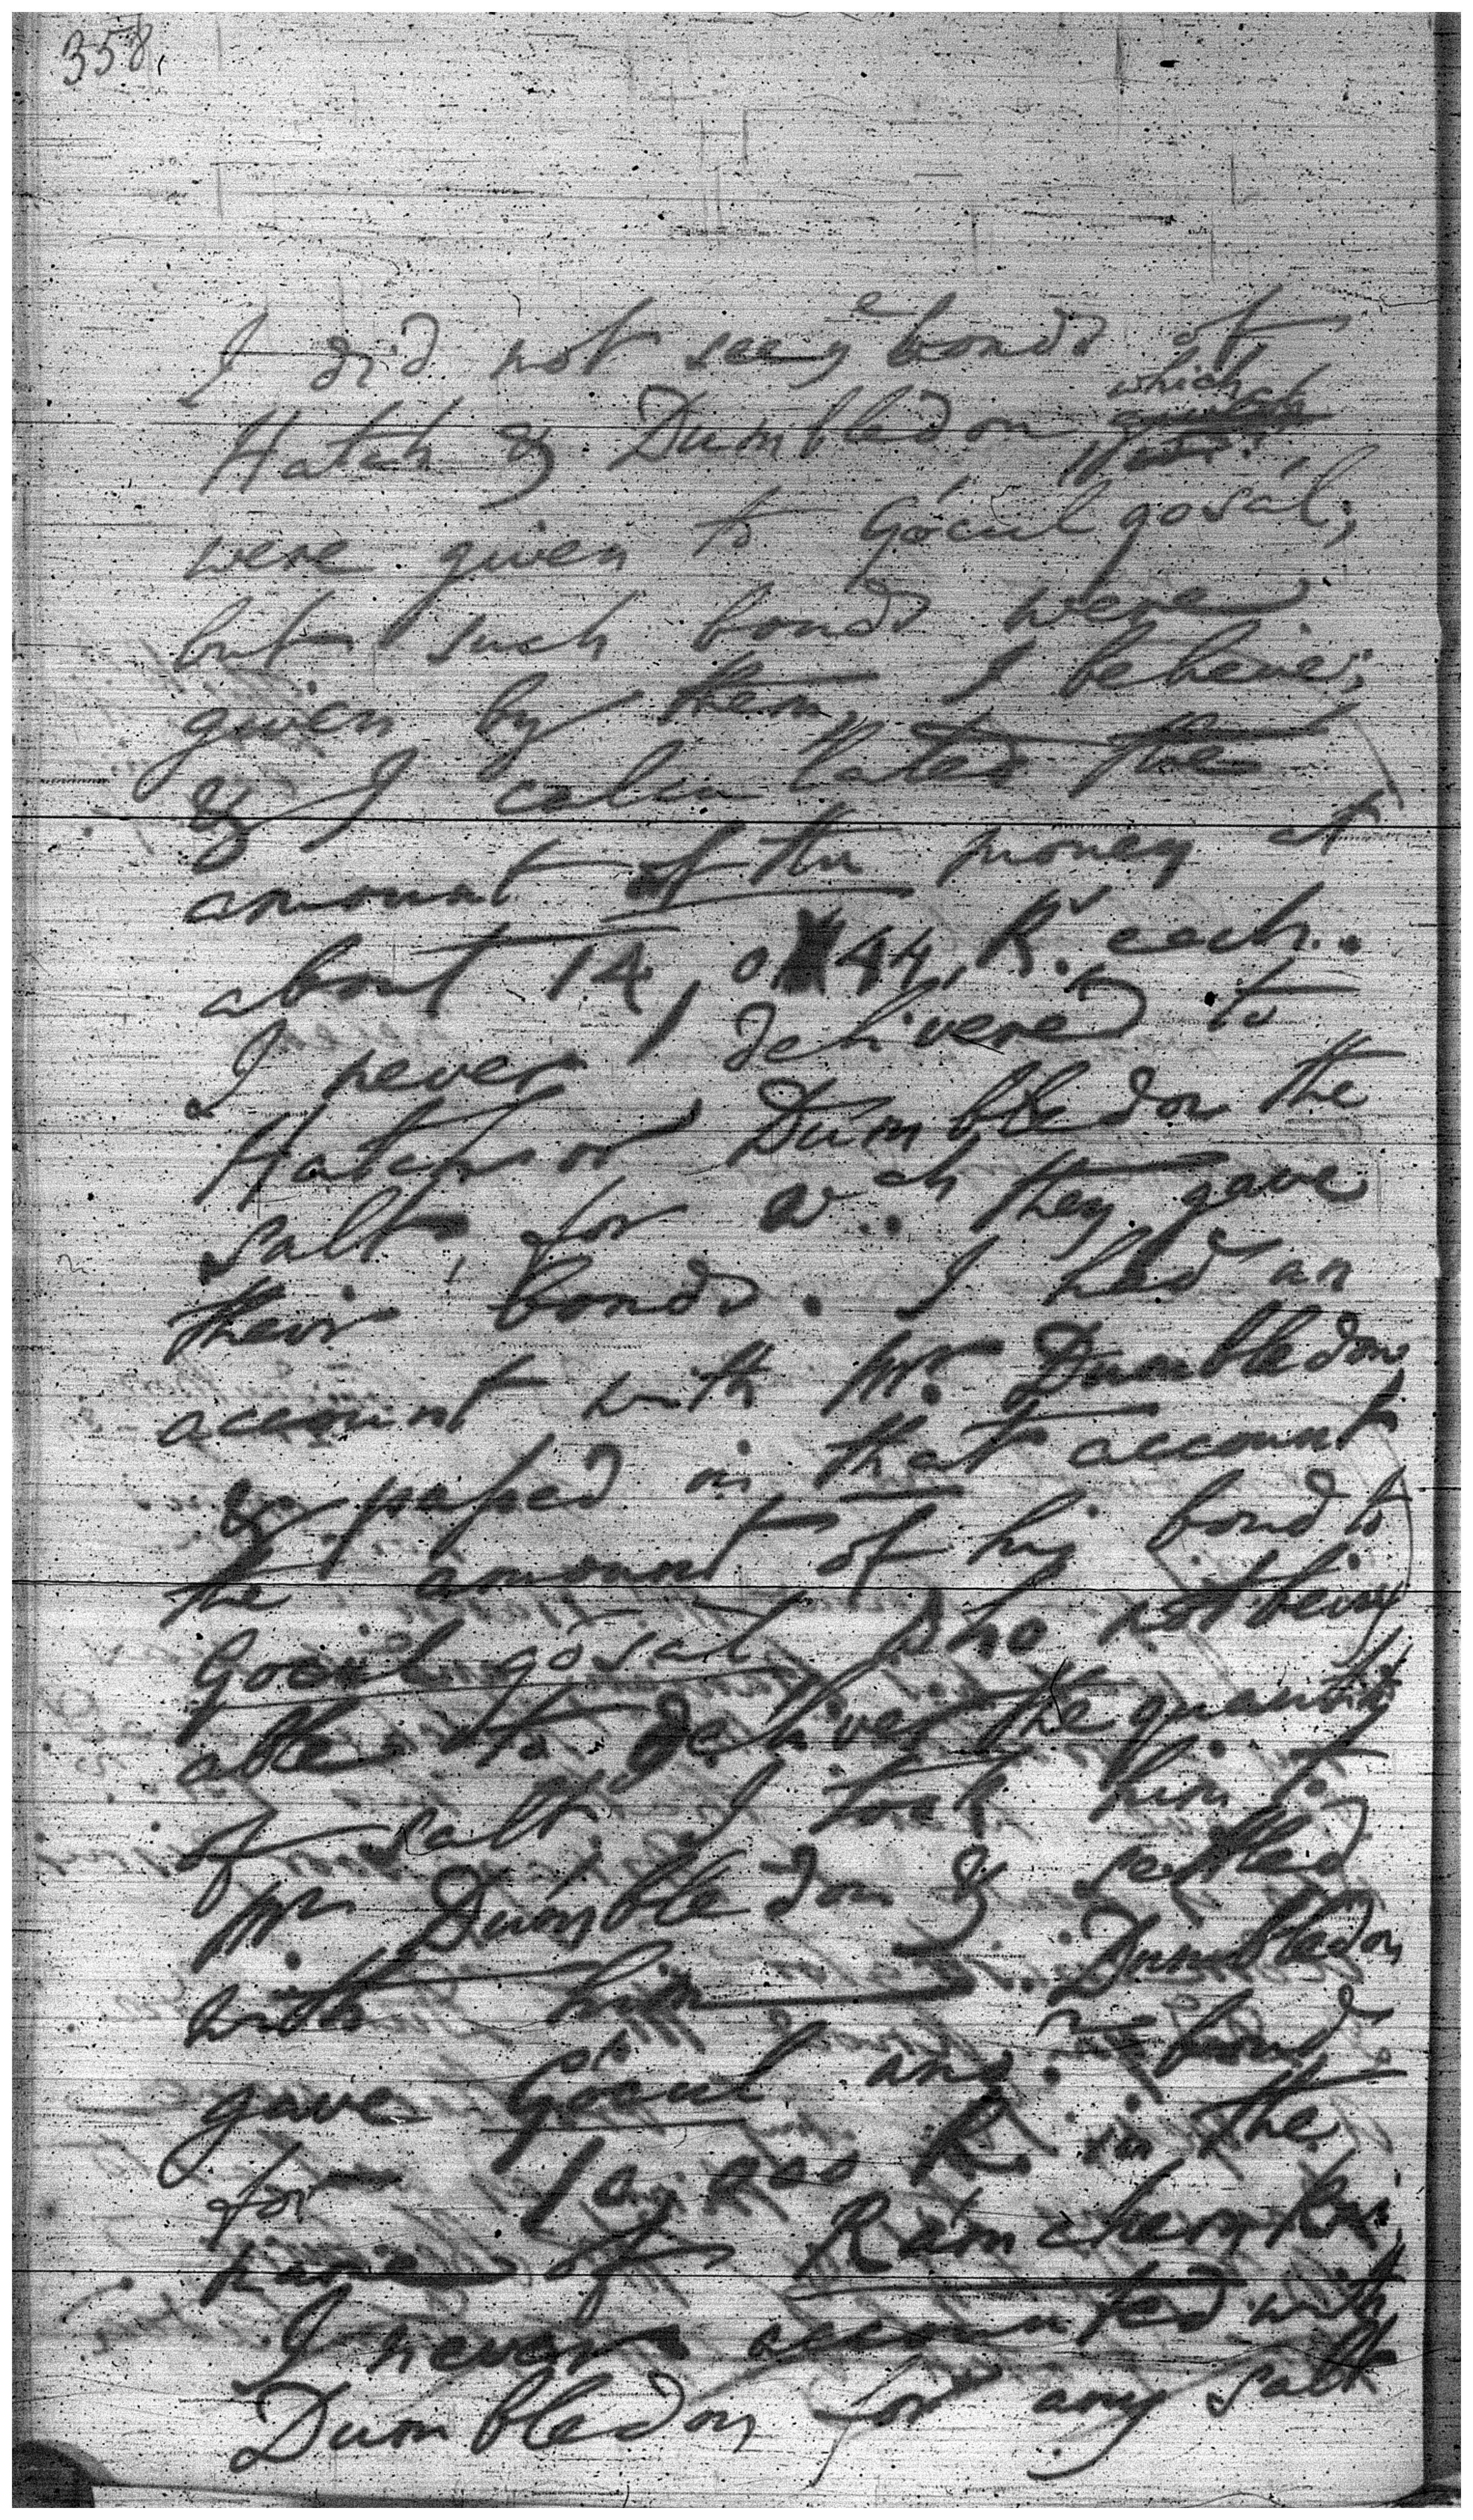 358.
I did not see yͤ bonds of
which
Hatch & Dumbledon
were given to Gócul gosál;
but such bonds were
given by them, I believe;
& I calculated the
amount of the money at
about 14, 0 44, R.ˢ each..
I never delivered to
Hatch or Dumbledon the
salt, for w..ch they gave
their bonds. I had an
account with Mr. Dumbledon
& passed in that account
the amount of his bond to
Gócul gósal, who not being
able to deliver the quantity
of salt I took him to
Mr. Dumbledon & settled
with him. Dumbledon
gave Gócul anoʳ. bond
for 10,000 R in the
name of Rám chern
I never accounted with
Dumbledon for any salt